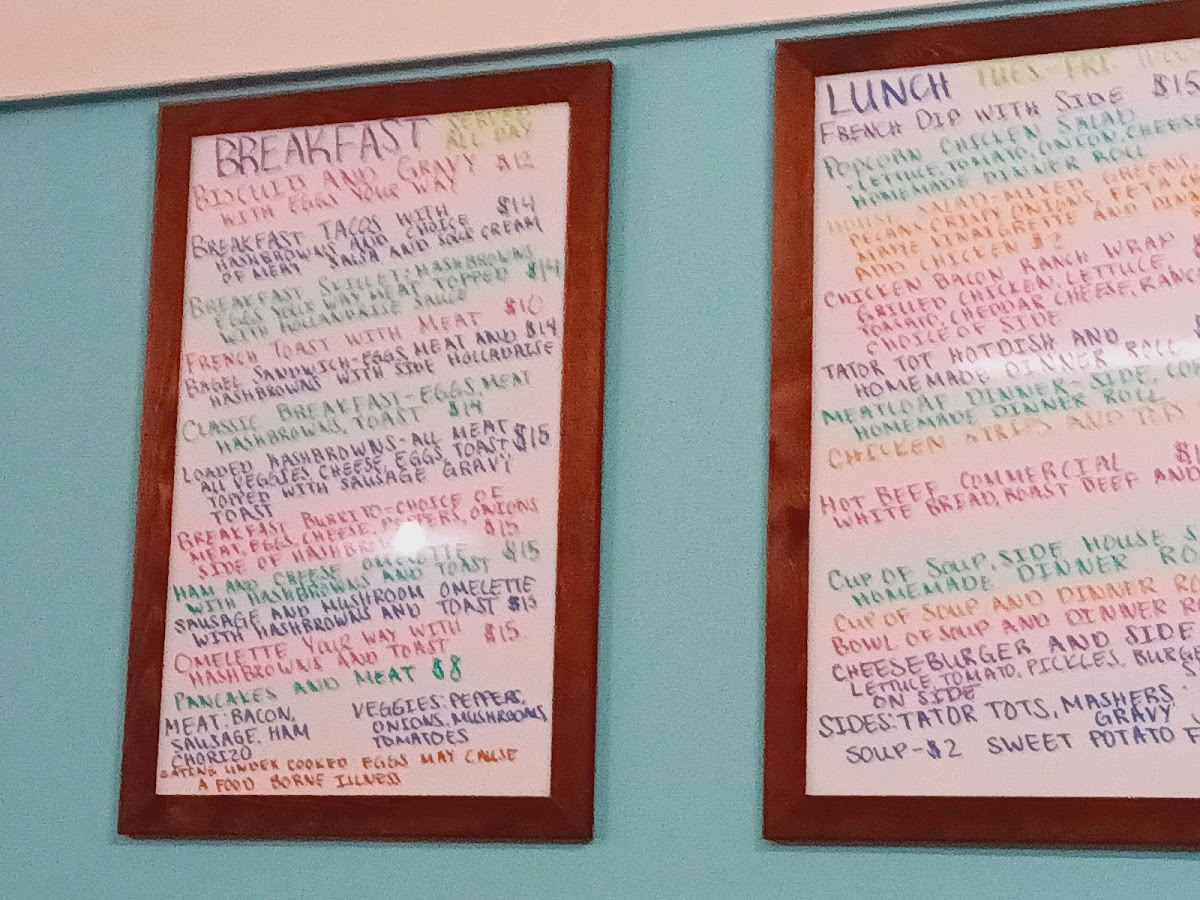 BREAKFAST SERVED ALL DAY
BISCUITS AND GRAVY $12
WITH EGGS YOUR WAY
BREAKFAST TACOS WITH $14
HASHBROWNS AND CHOICE
OF MEAT SALSA AND SOUR CREAM
BREAKFAST SKILLET: HASHBROWNS
EGGS YOUR WAY MEAT TOPPED $14
WITH HOLLANDAISE SAUCE
FRENCH TOAST WITH MEAT $10
BAGEL SANDWICH-EGGS, MEAT AND $14
HASHBROWNS WITH SIDE HOLLADAISE
CLASSIC BREAKFAST-EGGS, MEAT
HASHBROWNS, TOAST $14
LOADED HASHBROWNS-ALL MEAT
ALL VEGGIES, CHEESE, EGGS, TOAST $15
TOPPED WITH SAUSAGE GRAVY
TOAST
BREAKFAST BURRITO-CHOICE OF
MEAT, EGGS, CHEESE, PEPPERS, ONIONS
SIDE OF $15
HAM AND CHEESE OMELETTE $15
WITH HASHBROWNS AND TOAST
SAUSAGE AND MUSHROOM OMELETTE
WITH HASHBROWNS AND TOAST $15
OMELETTE YOUR WAY WITH $15
HASHBROWNS AND TOAST
PANCAKES AND MEAT $8
MEAT: BACON,
SAUSAGE, HAM
CHORIZO
VEGGIES: PEPPERS,
ONIONS, MUSHROOMS,
TOMATOES
EATING UNDER COOKED EGGS MAY CAUSE
A FOOD BORNE ILLNESS
LUNCH TUES-FRI
FRENCH DIP WITH SIDE $15
POPCORN CHICKEN SALAD
-LETTUCE, TOMATO, ONION, CHEESE
HOMEMADE DINNER ROLL
HOUSE SALAD-MIXED GREENS,
PECANS, CRISPY ONIONS, FETA,
MAPLE VINAIGRETTE AND
ADD CHICKEN $2
CHICKEN BACON RANCH WRAP
GRILLED CHICKEN, LETTUCE
TOMATO, CHEDDAR CHEESE,
CHOICE OF SIDE
TATOR TOT HOTDISH AND
HOMEMADE DINNER ROLL
MEATLOAF DINNER-SIDE,
HOMEMADE DINNER ROLL
CHICKEN STRIPS AND TOTS
HOT BEEF COMMERCIAL
WHITE BREAD, ROAST BEEF AND
CUP OF SOUP, SIDE HOUSE
HOMEMADE DINNER
CUP OF SOUP AND DINNER
BOWL OF SOUP AND DINNER
CHEESEBURGER AND SIDE
LETTUCE, TOMATO, PICKLES,
ON SIDE
SIDES: TATOR TOTS, MASHERS
GRAVY
SOUP-$2 SWEET POTATO